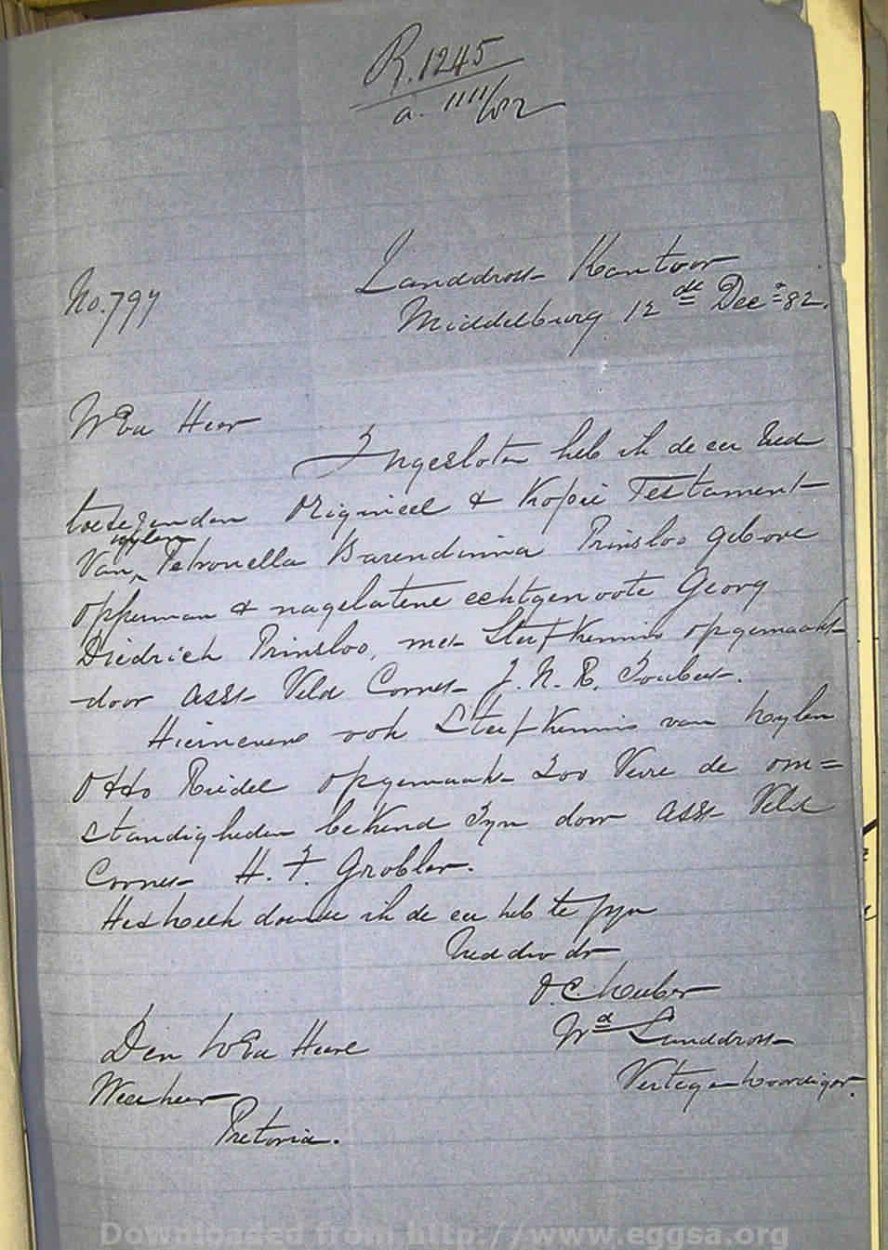 R. 1245
a. 1111/82
Landdrost Kantoor
No. 797
Middelburg 12de Dec 82.
WEd Heer
Ingesloten heb ik de eer Ued
toetezenden Origineel & Kopie Testament
van wylen Petronella Barendinna Prinsloo gebore
Opperman & nagelatene echtgenoote Georg
Diedrich Prinsloo, met Sterfkennis opgemaakt
door asst Veld Cornet J. N. R. Joubert.
Hiernevens ook Sterfkennis van wylen
Otto Riedel opgemaakt zoo verre de om=
standigheden bekend zyn door asst Veld
Cornet H. F. Grobler.
Het welk doende ik de eer heb te zyn
Ued dw dr
Wd Landdrost
Den WEd Heere
Weesheer
Vertegenwoordiger.
Pretoria.
Downloaded from http://www.eggsa.org